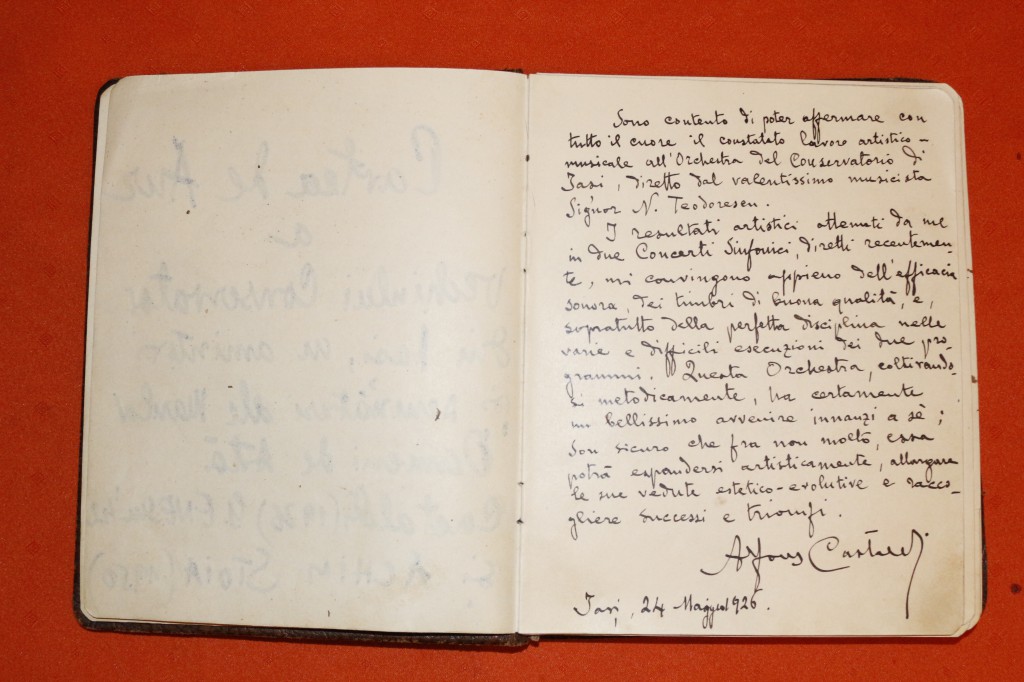 Sono contento di poter affermare con
tutto il cuore il constatato lavoro artistico-
musicale all'Orchestra del Conservatorio di
Iasi, diretto dal valentissimo musicista
Signor N. Teodorescu.
I resultati artistici ottenuti da me
in due Concerti Sinfonici, diretti recentemen-
te, mi convingono appieno dell'efficacia
sonora, dei timbri di buona qualità, e,
sopratutto della perfetta disciplina nelle
varie e difficili esecuzioni dei due pro-
grammi. Questa Orchestra, coltivando-
si metodicamente, ha certamente
un bellissimo avvenire innanzi a sè;
Son sicuro che fra non molto, essa
potrà espandersi artisticamente, allargare
le sue vedute estetico-evolutive e racco-
gliere successi e trionfi.
Alfons Castaldi
Iași, 24 1926.
Cartea de Aur
a
vechiului Conservator
din Iasi, cu amintiri
ale
Oameni de Artă